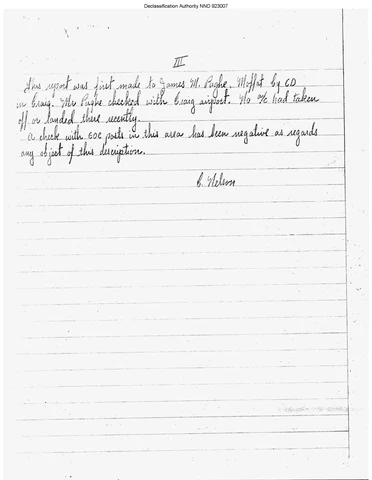 Declassification Authority NND 923007
III
This report was first made to James M. Pughe, Moffat by CD
in Craig. Mr Pughe checked with Craig airport. No a/c had taken
off or landed there recently.
A check with GOC posts in this area has been negative as regards
any object of this description.
C. Nelson